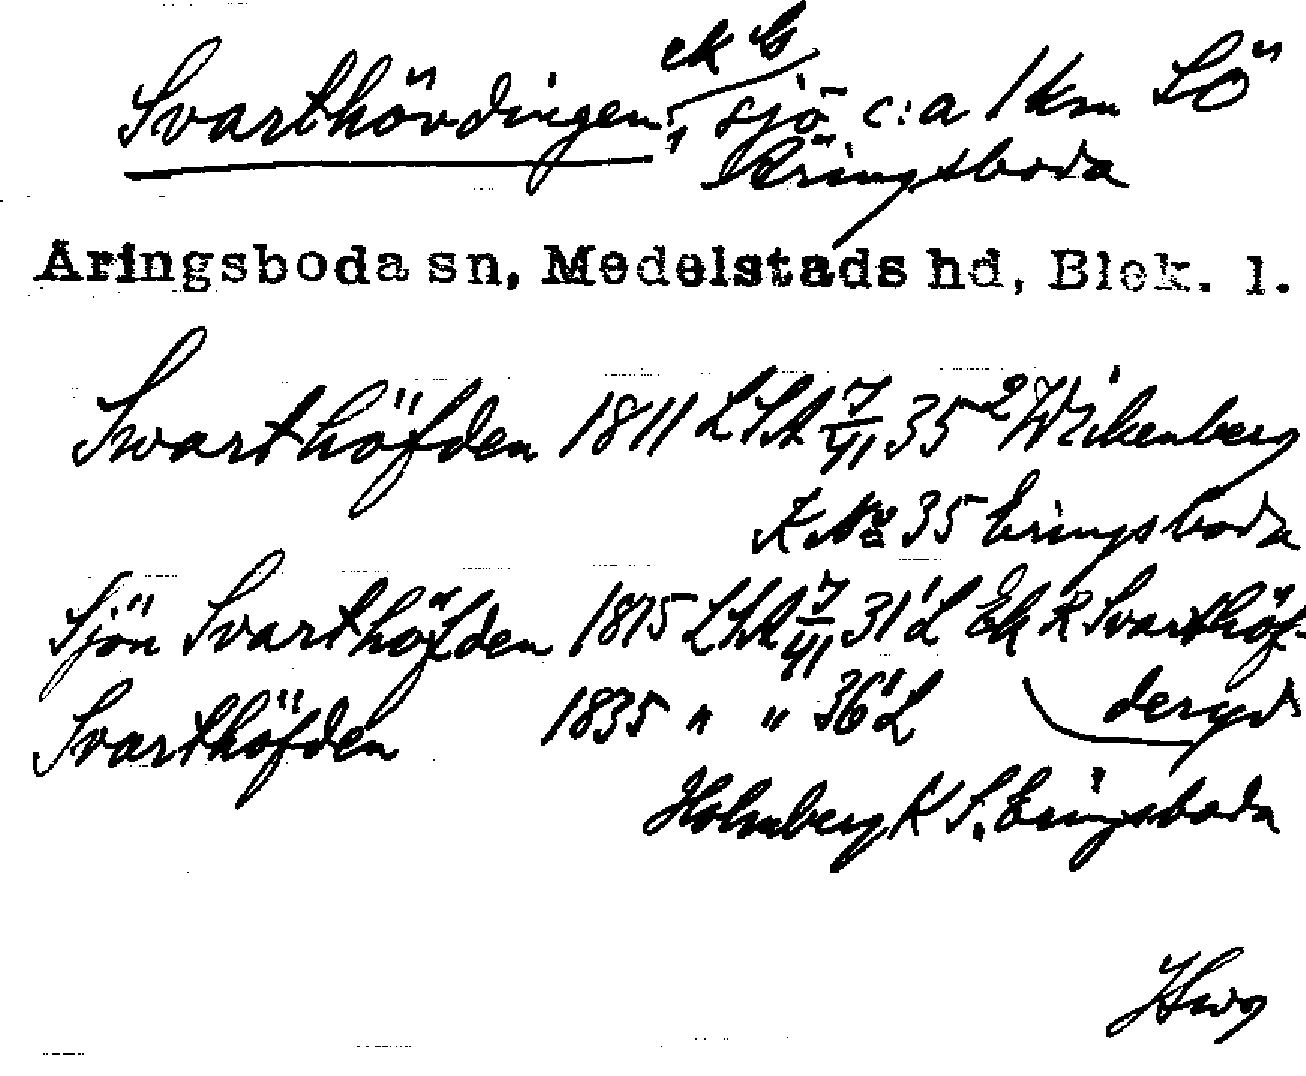 ek G
Svarthövdingen, sjö c:a 1 km SÖ
Äringsboda
Äringsboda sn, Medelstads hd, Blek. l.
Svarthöfden 1811 LSA 7/41 35 2 Wikenberg
K No 35 Eringsboda
Sjön Svarthöfden 1815 LSA 7/41 31 L Ek R Svarthöf-
Svarthöfden 1835 " " 36 L deryd
Holmberg K S. Eringsboda